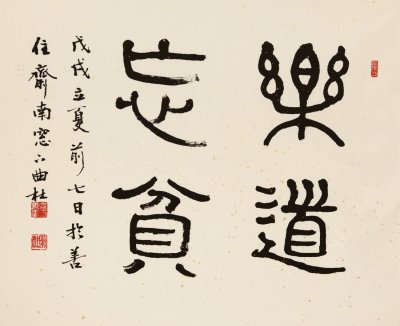 樂道
忘貧
戊戌立夏前七日於善
住齋南窓下曲杜